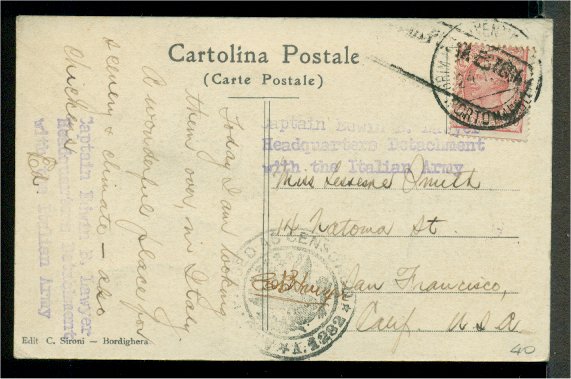 Cartolina Postale
(Carte Postale)
Today I am looking
them over, in Italy
A wonderful place for
scenery & climate — also
chickens.
Ed
Captain Edwin B. Lawyer
Headquarters Detachment
with the Italian Army
Captain Edwin B. Lawyer
Headquarters Detachment
with the Italian Army
Miss Smith
14 Natoma St.
San Francisco,
Calif. U.S.A.
A.1282
Edit C. Sironi - Bordighera
40